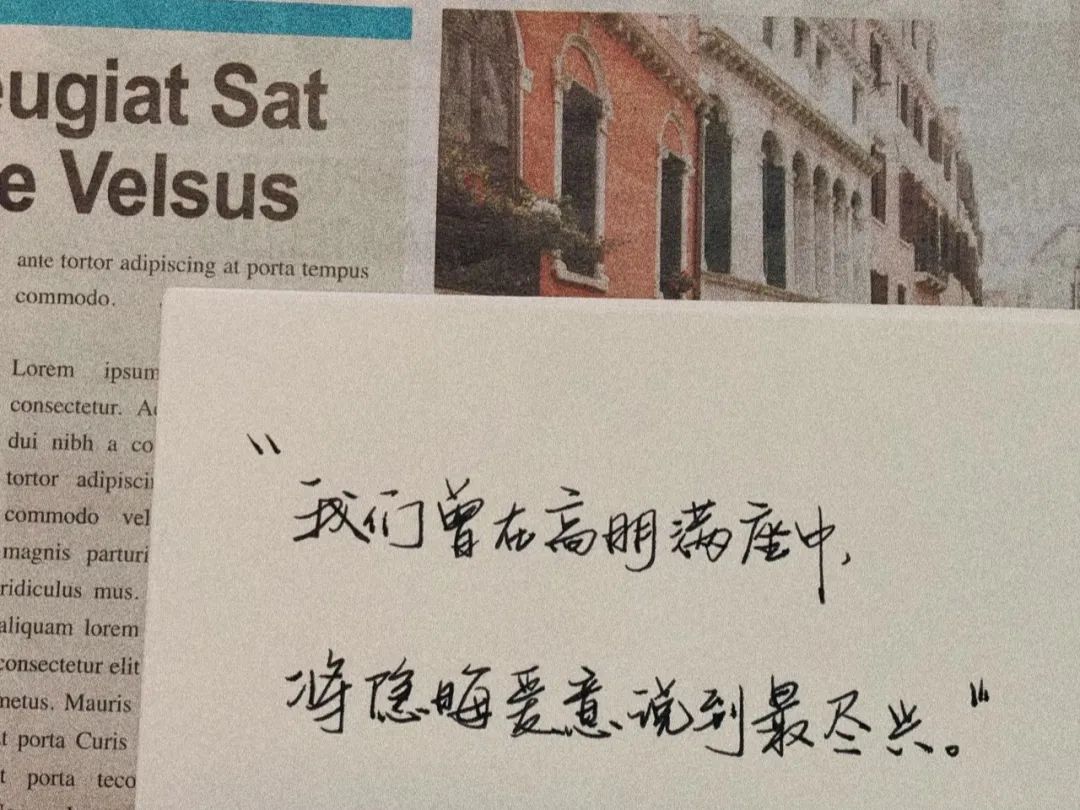 eugiat Sat
e Velsus
ante tortor adipiscing at porta tempus
commodo.
Lorem ipsum
consectetur.
dui nibh a co
tortor adipisci
commodo vel
magnis parturi
ridiculus mus.
aliquam lorem
consectetur elit
metus. Mauris
t porta Curis
t porta teco
“我们曾在高朋满座中，
将隐晦爱意说到最尽兴。”